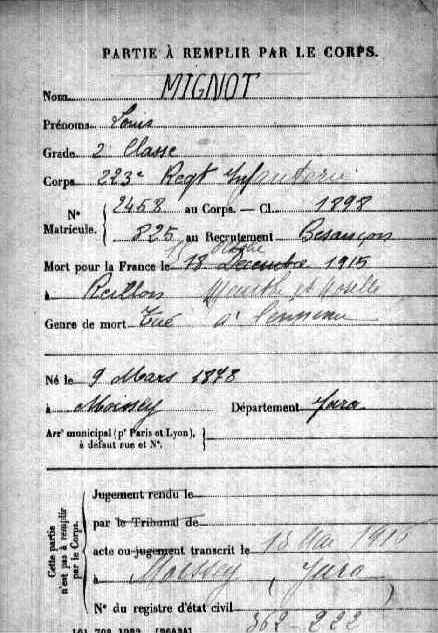 PARTIE À REMPLIR PAR LE CORPS.
Nom MIGNOT
Prénoms Louis
Grade 2 Classe
Corps 223e Regt Infanterie
N° Matricule. { 2458 au Corps. — Cl. 1898
825 au Recrutement Besançon
Mort pour la France le 18 Decembre 1915
à Reillon Meurthe et Moselle
Genre de mort Tué à l'ennemi
Né le 9 Mars 1878
à Moissey Département Jura
Arrt municipal (pr Paris et Lyon), à défaut rue et N°. {
Cette partie n'est pas à remplir par le Corps.
Jugement rendu le
par le Tribunal de
acte ou jugement transcrit le 15 Mai 1916
à Moissey (Jura)
N° du registre d'état civil 362-222